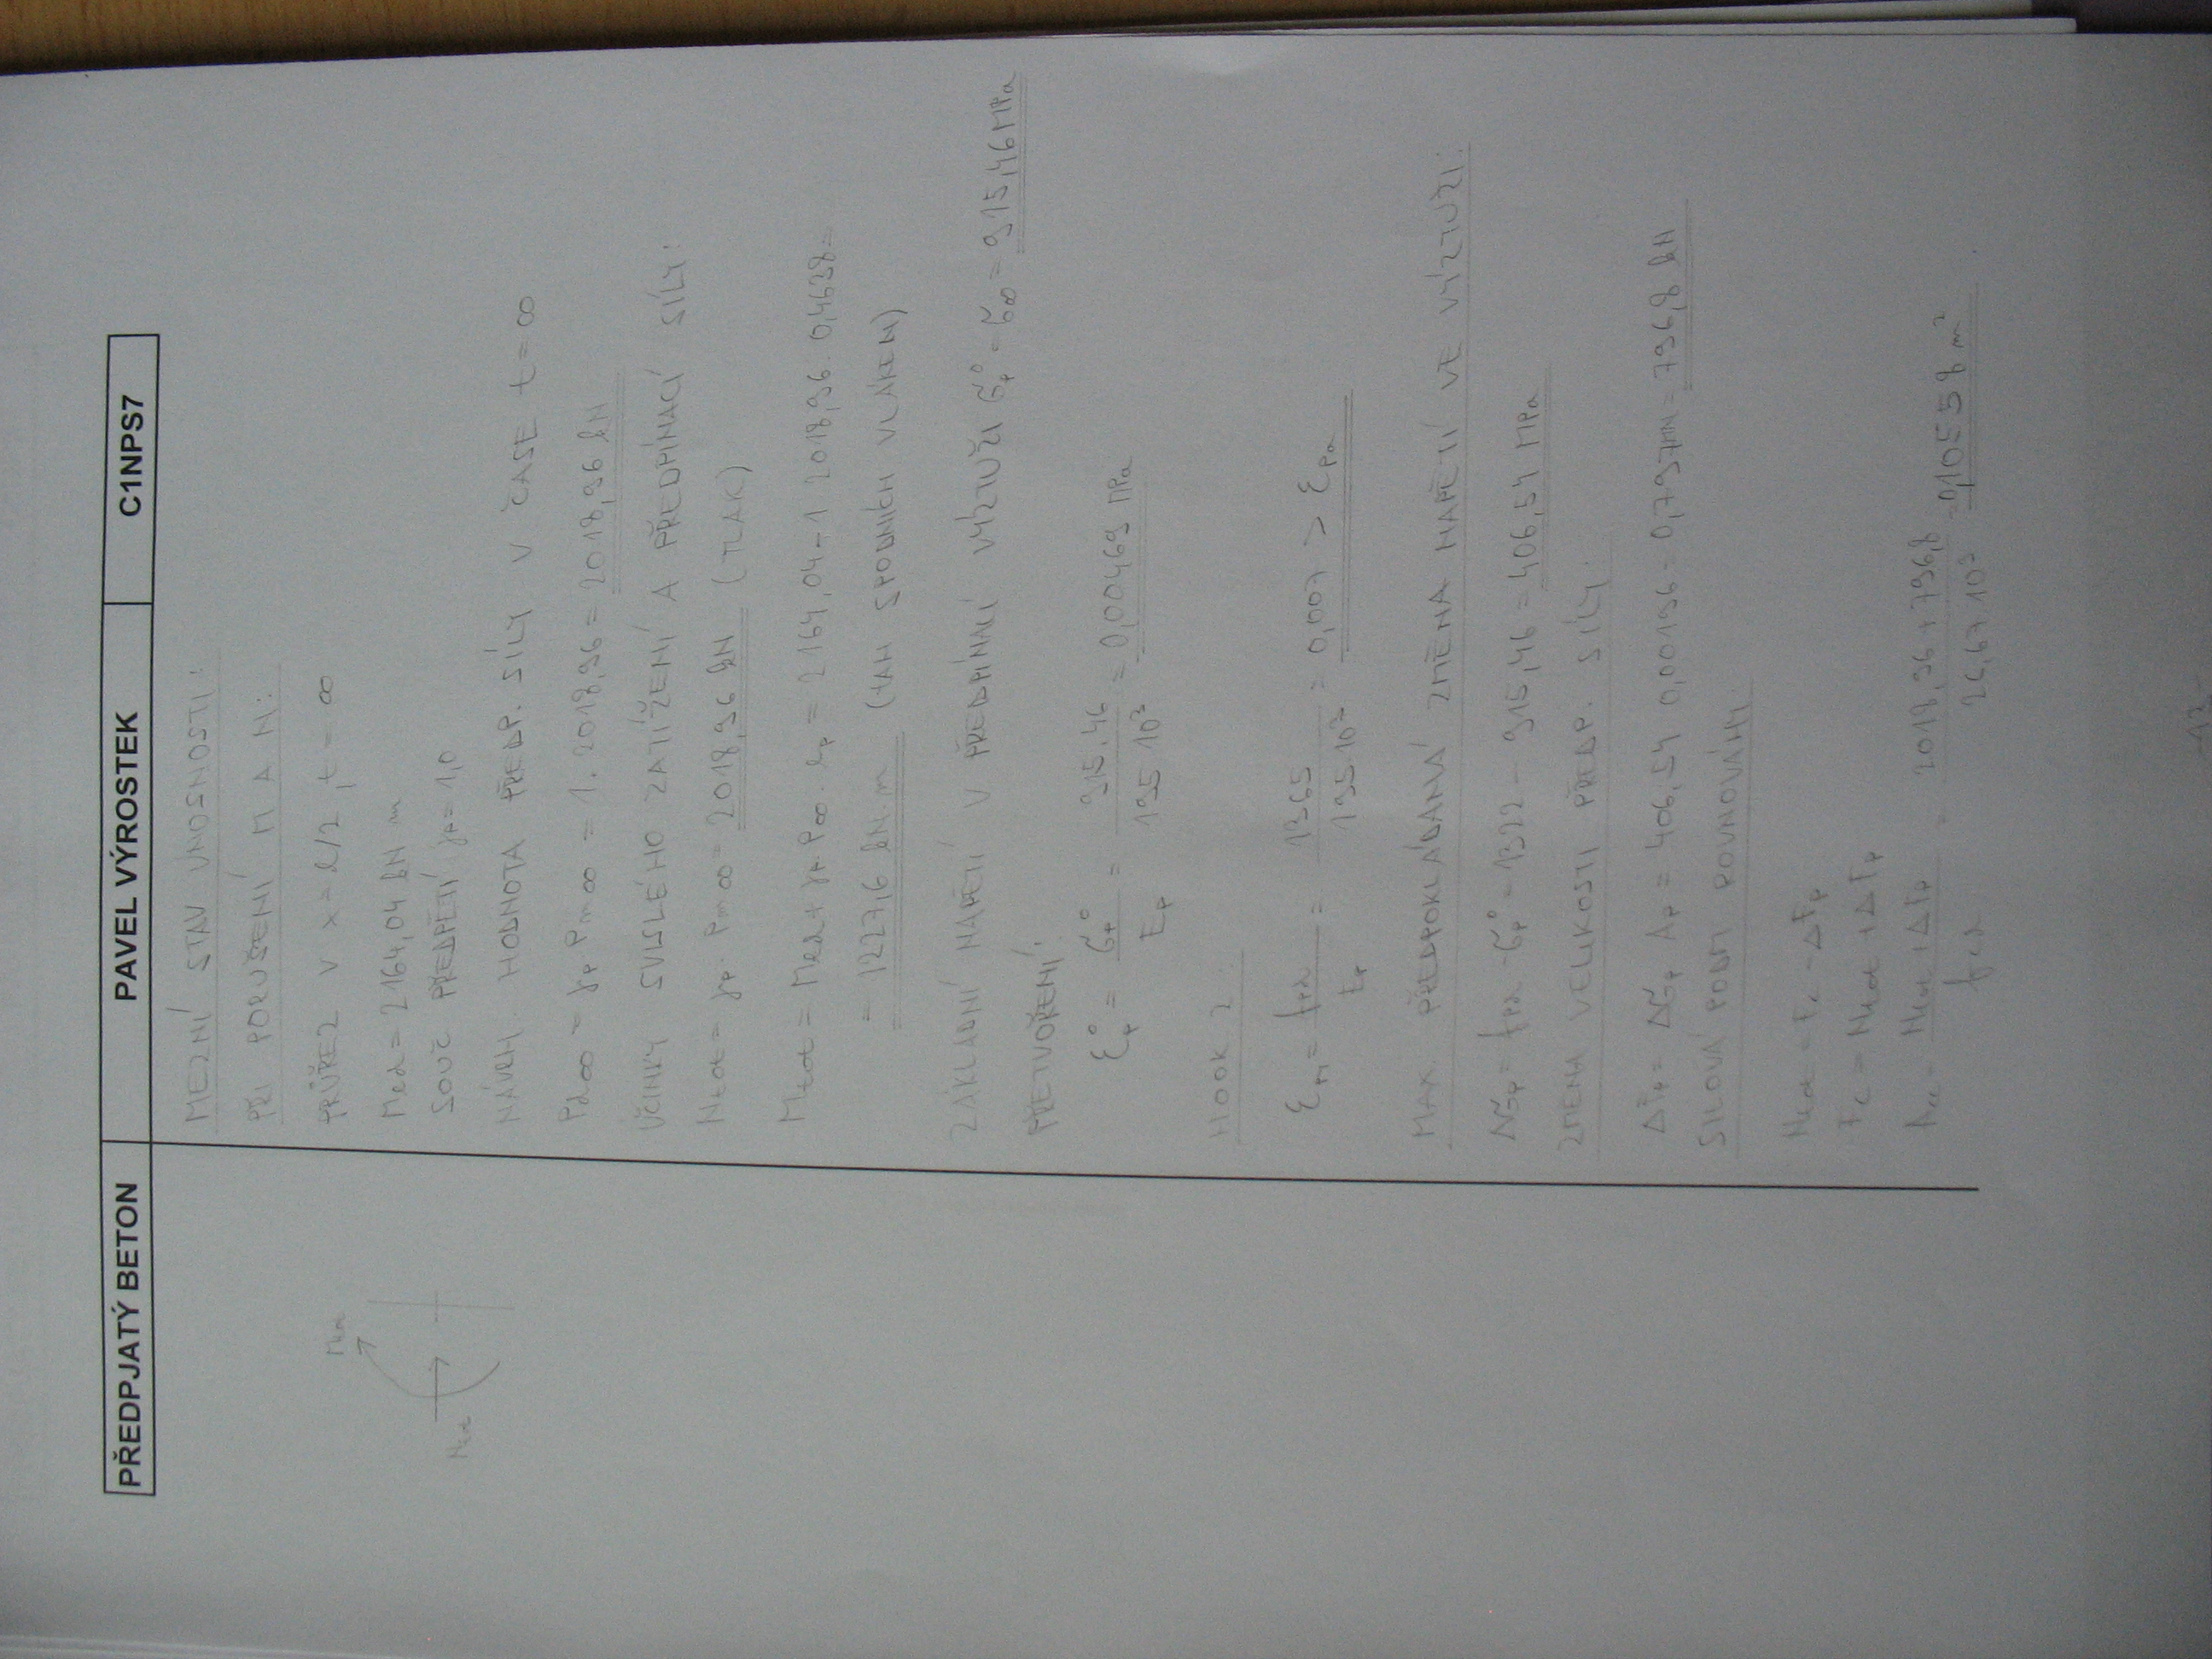 PŘEDPJATÝ BETON PAVEL VÝROSTEK C1NPS7
MEZNÍ STAV ÚNOSNOSTI:
PŘI PORUŠENÍ M A N:
PRŮŘEZ V x = l/2, t = ∞
Med = 2164,04 kN m
SOUČ PŘEDPĚTÍ γp = 1,0
NÁVRH. HODNOTA PŘEDP. SÍLY V ČASE t = ∞
Pd∞ = γp. Pm∞ = 1. 2018,96 = 2018,96 kN
ÚČINKY SVISLÉHO ZATÍŽENÍ A PŘEDPÍNACÍ SÍLY:
Ntot = γp. Pm∞ = 2018,96 kN (TLAK)
Mtot = Med + γp P∞. ep = 2164,04 - 1 2018,96. 0,4638 =
= 1227,6 kN.m (TAH SPODNÍCH VLÁKEN)
ZÁKLADNÍ NAPĚTÍ V PŘEDPÍNACÍ VÝZTUŽI σp° = σ∞ = 915,46 MPa
PŘETVOŘENÍ:
εp° = σp° / Ep = 915,46 / 195 10³ = 0,00469 MPa
HOOK Z.
= 1365 / 195 10³ = 0,007 > εpa
MAX. PŘEDPOKLÁDANÁ ZMĚNA NAPĚTÍ VE VÝZTUŽI:
Δσp = fpd - σp° = 1322 - 915,46 = 406,54 MPa
ZMĚNA VELIKOSTI PŘEDP. SÍLY:
ΔFp = Δσp Ap = 406,54 0,00196 = 0,797MN = 796,8 kN
SILOVÁ PODM ROVNOVÁHY:
= Fc - ΔFp
Fc = + ΔFp
Acc = + ΔFp / fcd = 2018,96 + 796,8 / 26,67 10³ = 0,10558 m²
Med